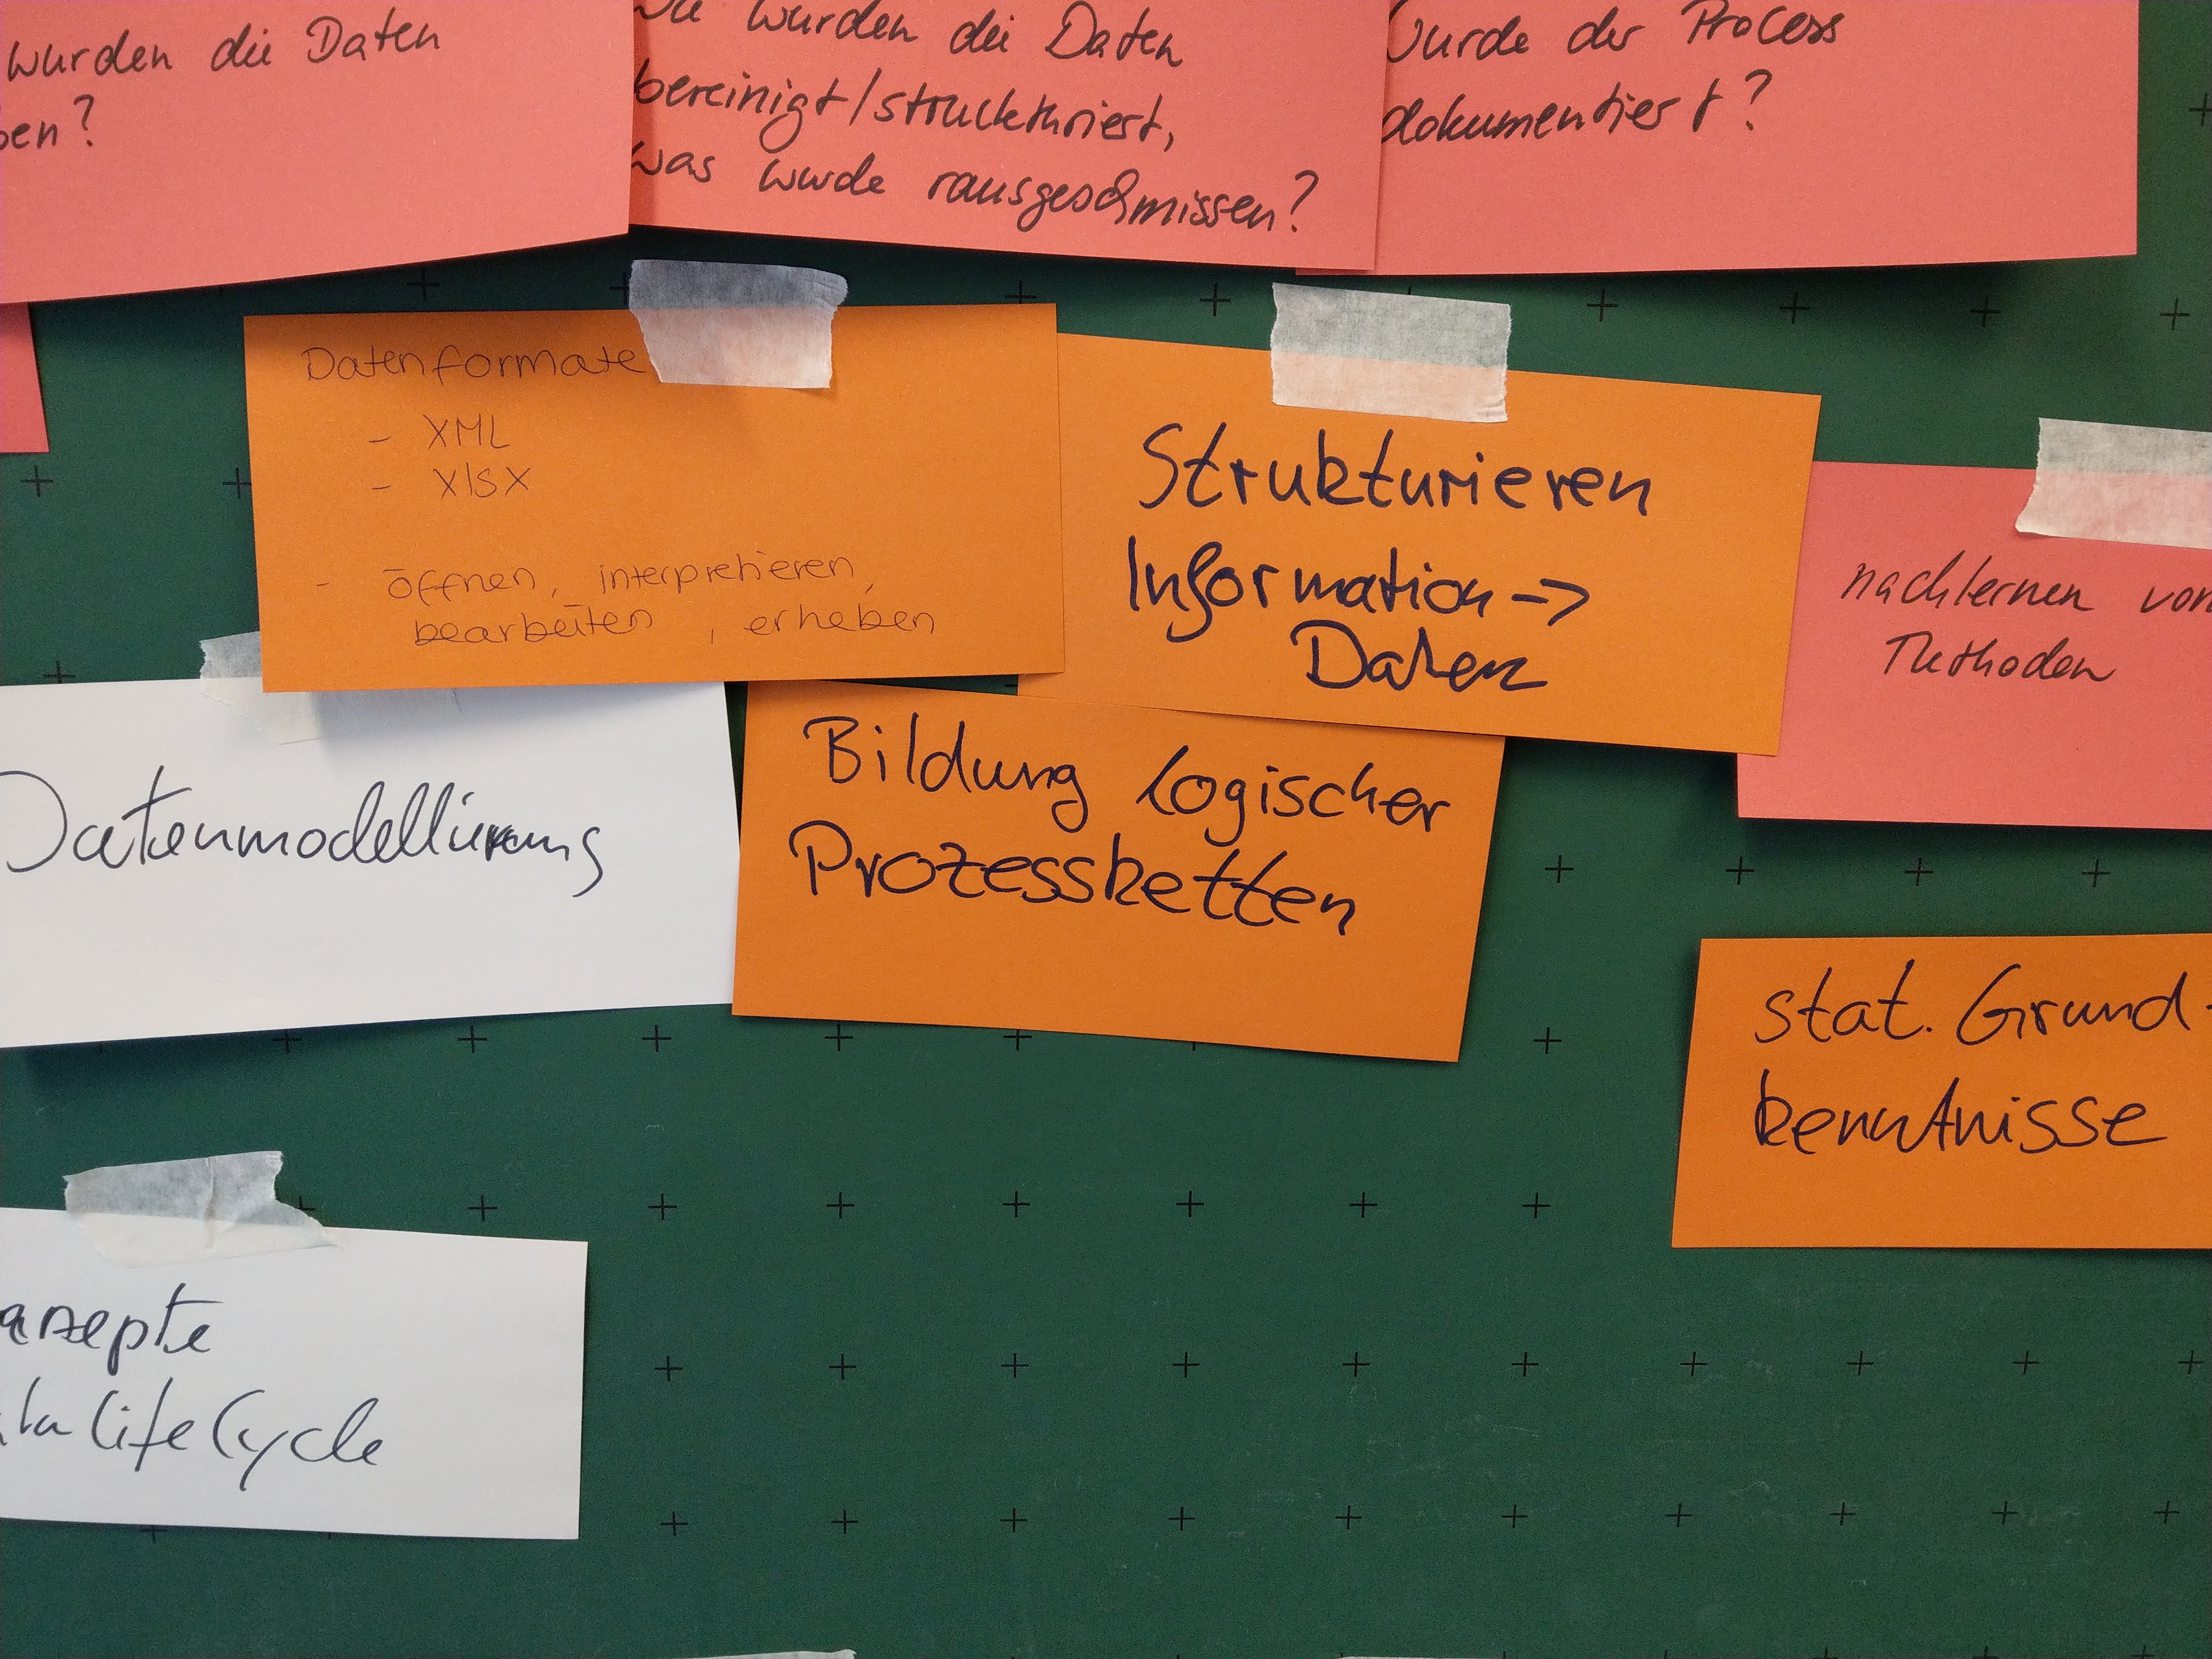 wurden die Daten
ben?
wurden die Daten
bereinigt/struckturiert,
was wurde rausgeschmissen?
Wurde der Process
dokumentiert?
Datenformate
- XML
- xlsx
- öffnen, interpretieren,
bearbeiten, erheben
Strukturieren
Information ->
Daten
nachlernen von
Methoden
Datenmodellierung
Bildung logischer
Prozessketten
stat. Grund-
kenntnisse
nzepte
ta Life Cycle